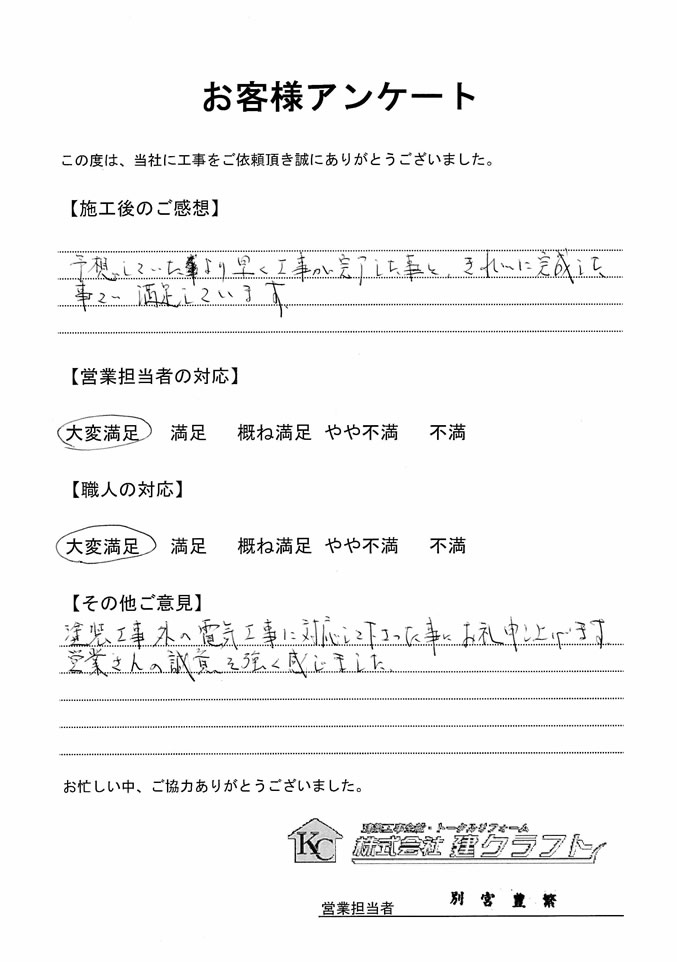 お客様アンケート
この度は、当社に工事をご依頼頂き誠にありがとうございました。
【施工後のご感想】
予想していた事より早く工事が完了した事と、きれいに完成した
事で満足しています
【営業担当者の対応】
大変満足 満足 概ね満足 やや不満 不満
【職人の対応】
大変満足 満足 概ね満足 やや不満 不満
【その他ご意見】
塗装工事外の電気工事に対応して下さった事にお礼申し上げます
営業さんの誠意を強く感じました。
お忙しい中、ご協力ありがとうございました。
建築工事全般・トータルリフォーム
KC 株式会社 建クラフト
営業担当者 別宮豊繁